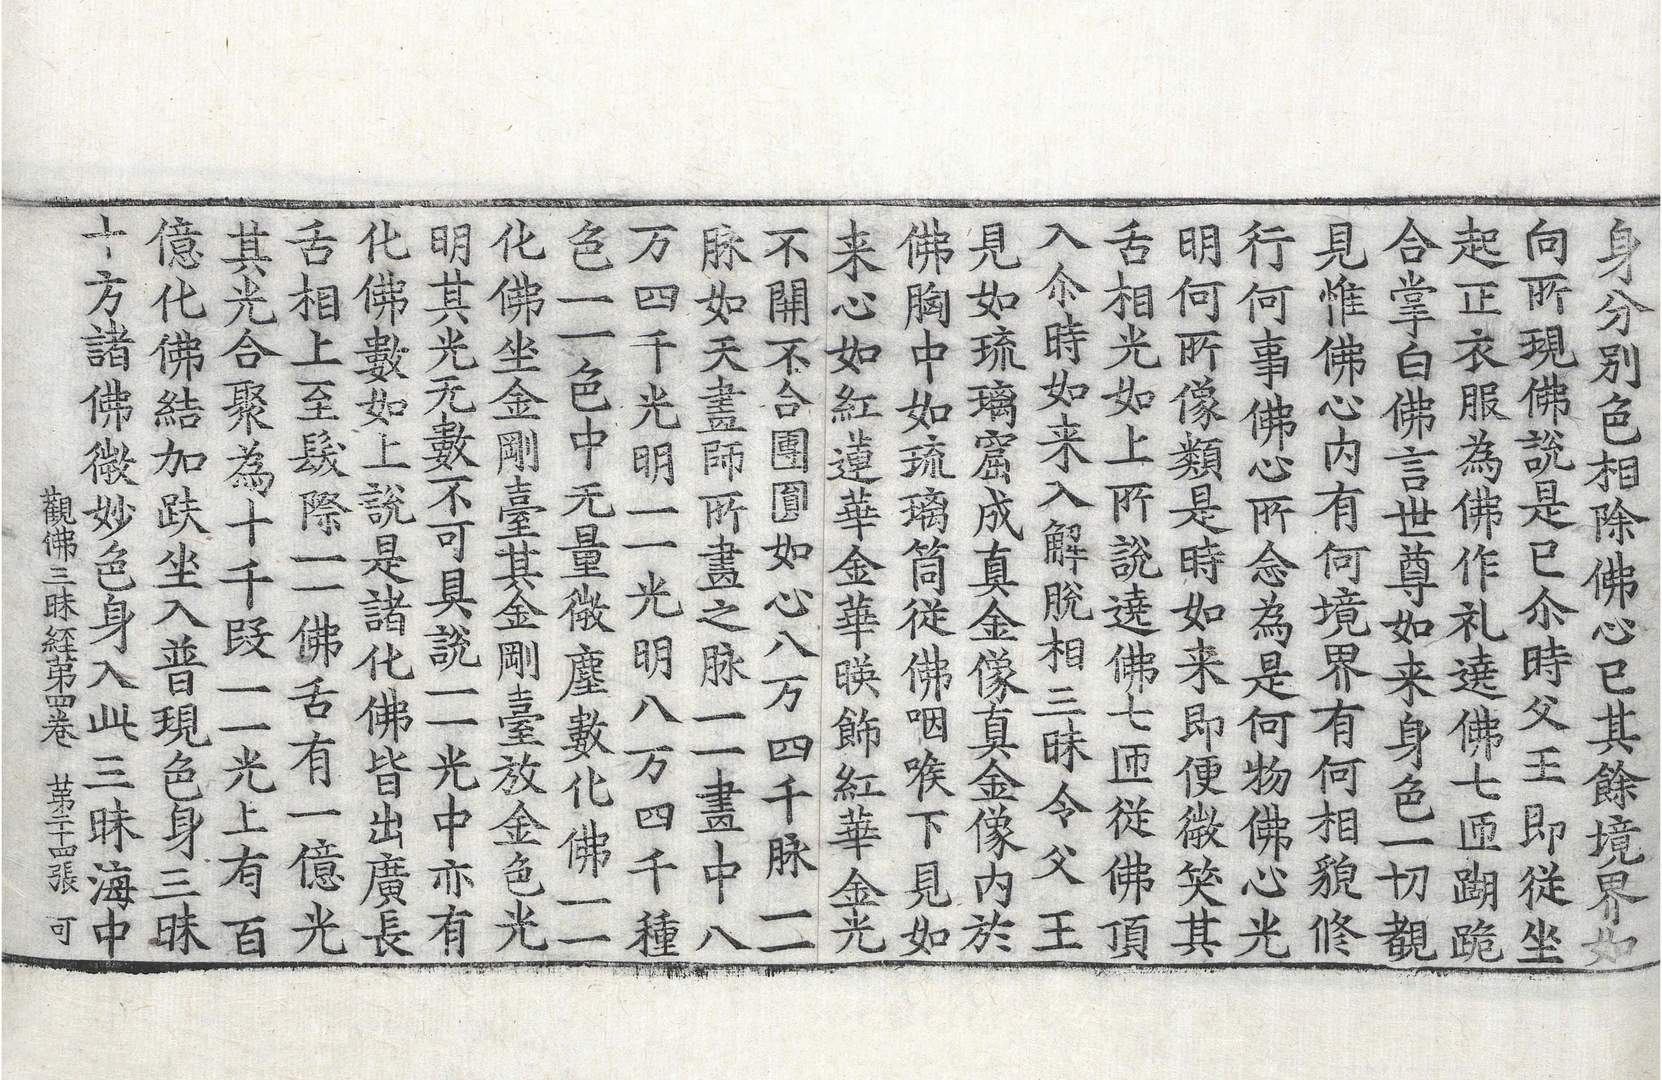 身分別色相除佛心已其餘境界如
向所現佛說是已尒時父王即從坐
起正衣服為佛作礼遶佛七匝䠒跪
合掌白佛言世尊如来身色一切觀
見惟佛心内有何境界有何相貌修
行何事佛心所念為是何物佛心光
明何所像類是時如来即便微笑其
舌相光如上所說遶佛七匝從佛頂
入尒時如来入解脫相三昧令父王
見如琉璃窟成真金像真金像内於
佛胸中如琉璃筒從佛咽喉下見如
来心如紅蓮華金華暎飾紅華金光
不開不合團圓如心八万四千脉一一
脉如天畫師所畫之脉一一畫中八
万四千光明一一光明八万四千種
色一一色中无量微塵數化佛一一
化佛坐金剛臺其金剛臺放金色光
明其光无數不可具說一一光中亦有
化佛數如上說是諸化佛皆出廣長
舌相上至髮際一一佛舌有一億光
其光合聚為十千段一一光上有百
億化佛結加趺坐入普現色身三昧
十方諸佛微妙色身入此三昧海中
觀佛三昧経第四卷 苐二十四張 可